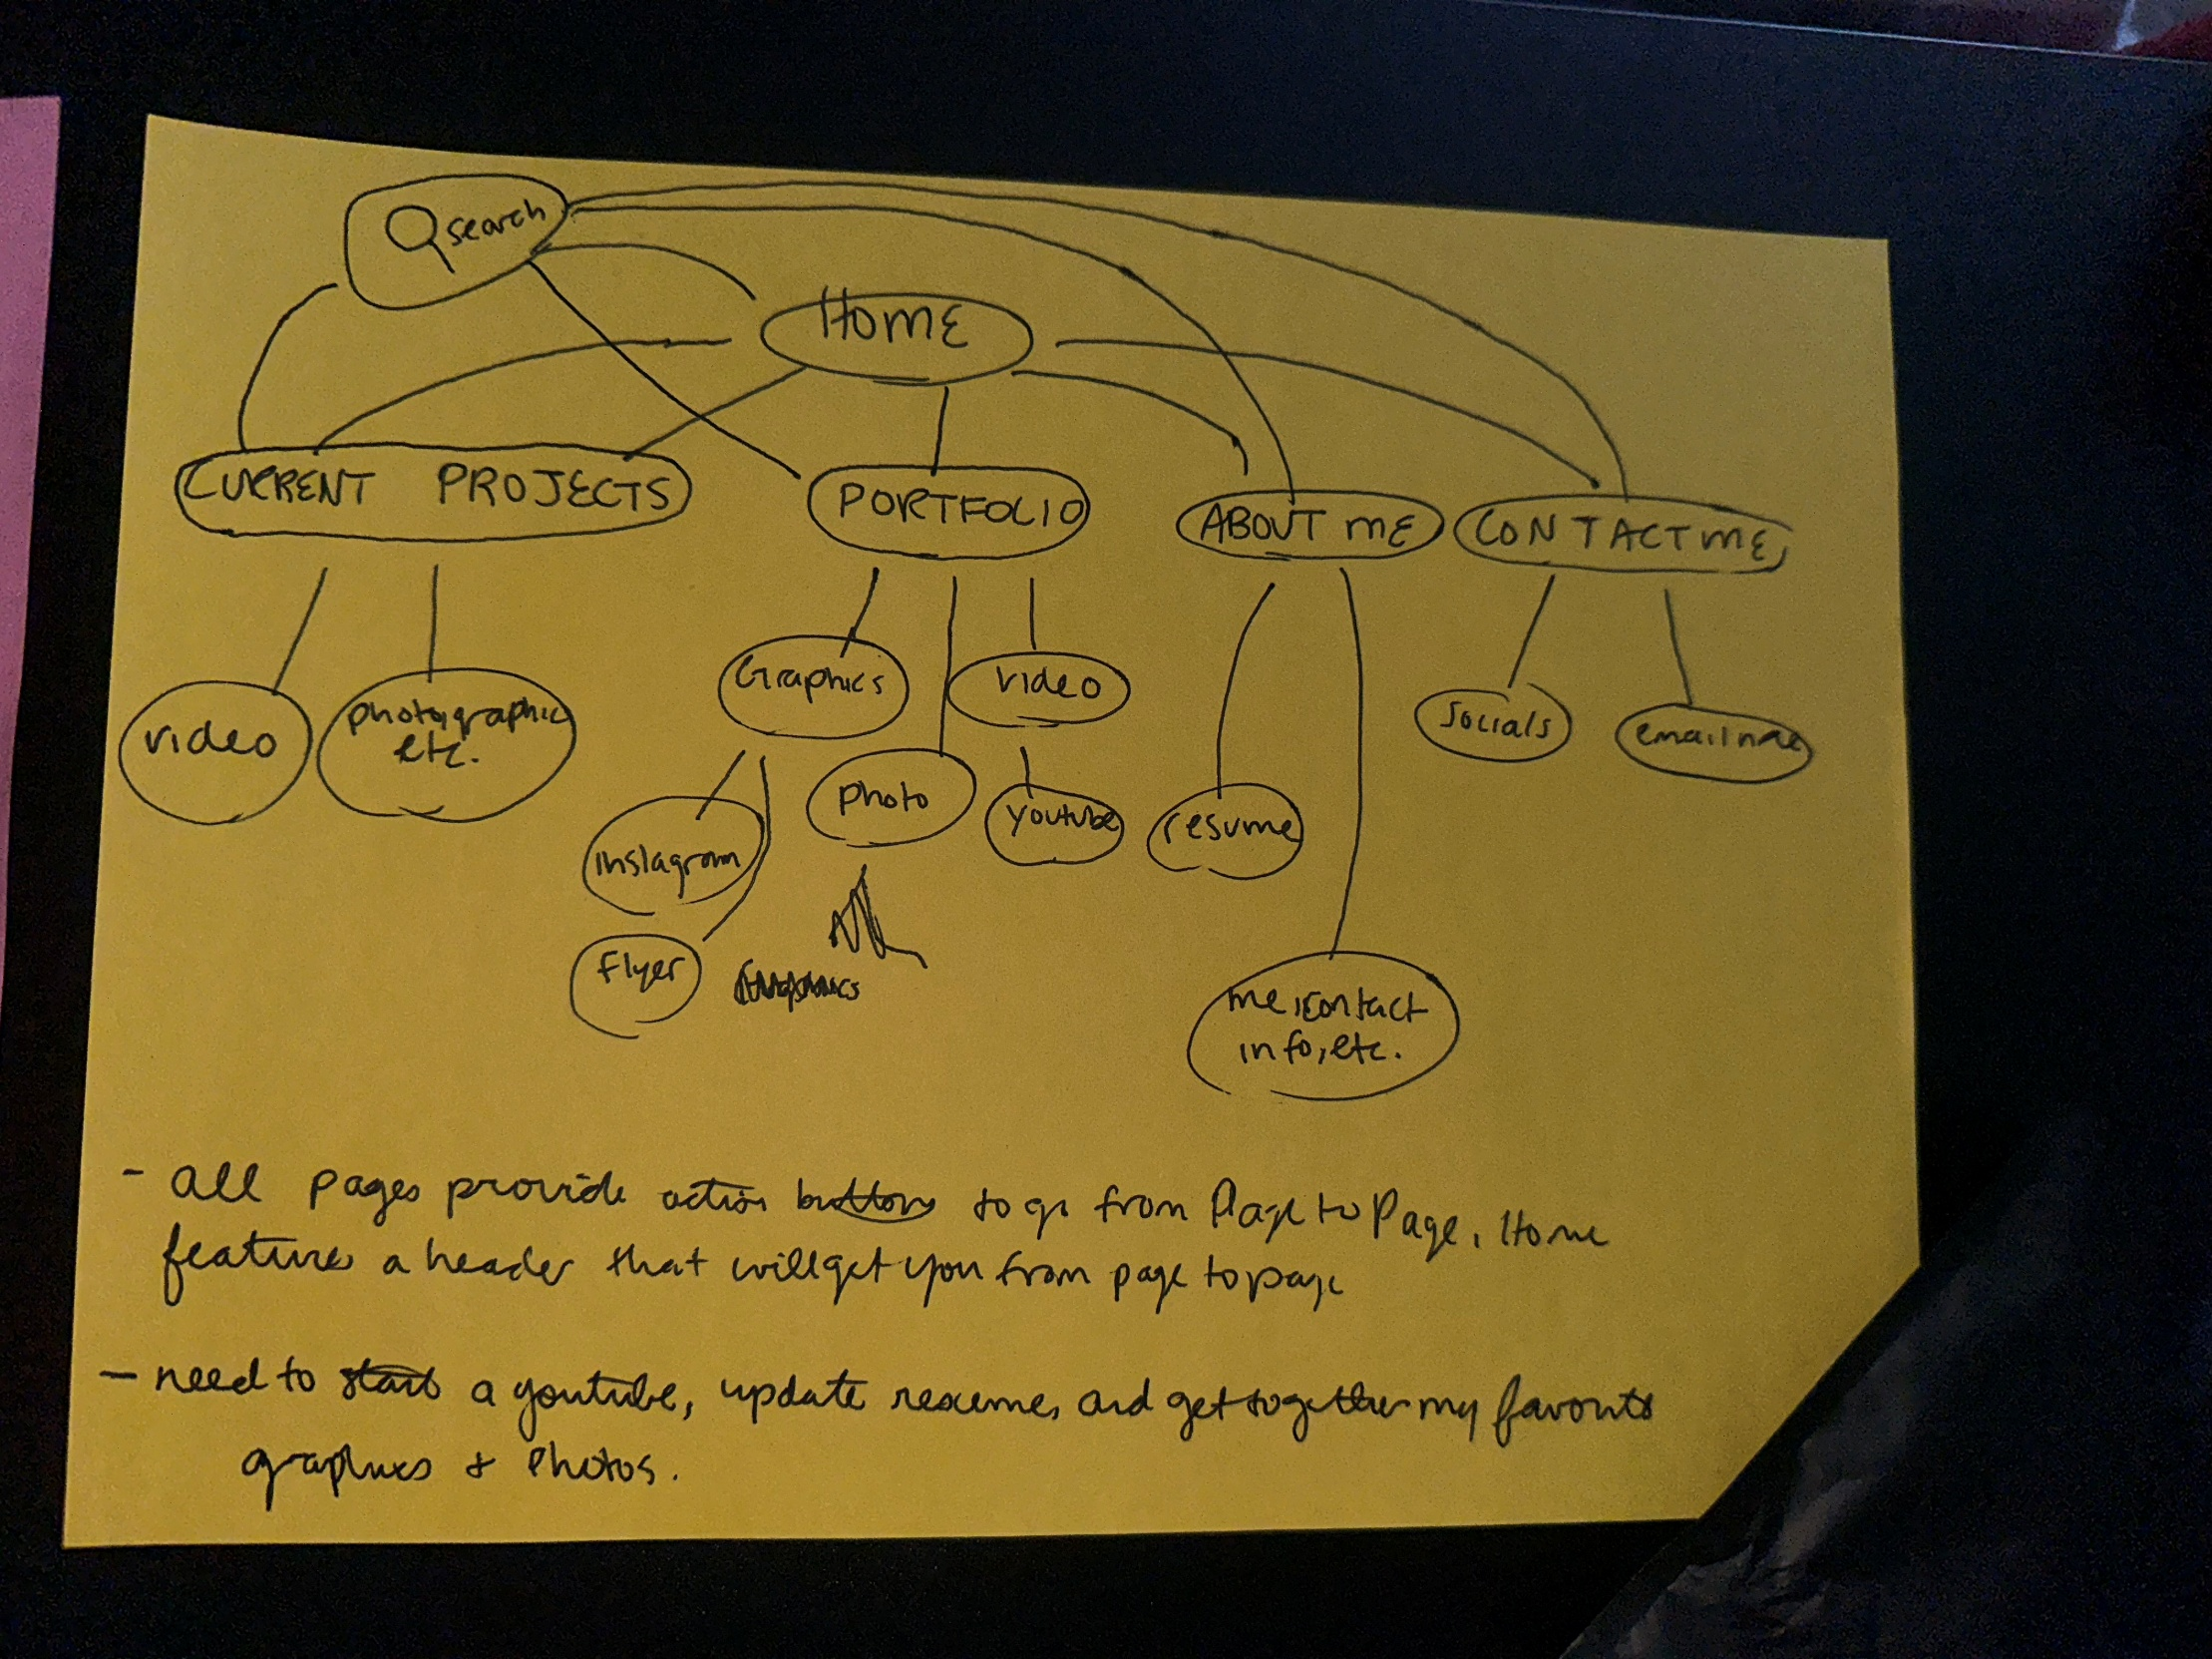 search
HOME
CURRENT PROJECTS
PORTFOLIO
ABOUT ME
CONTACT ME
video
photographic
etc.
Graphics
video
photo
youtube
instagram
flyer
resume
me, contact
info, etc.
socials
email
- all pages provide action buttons to go from Page to Page. Home
features a header that will get you from page to page
- need to start a youtube, update resume, and get together my favorite
graphics & photos.